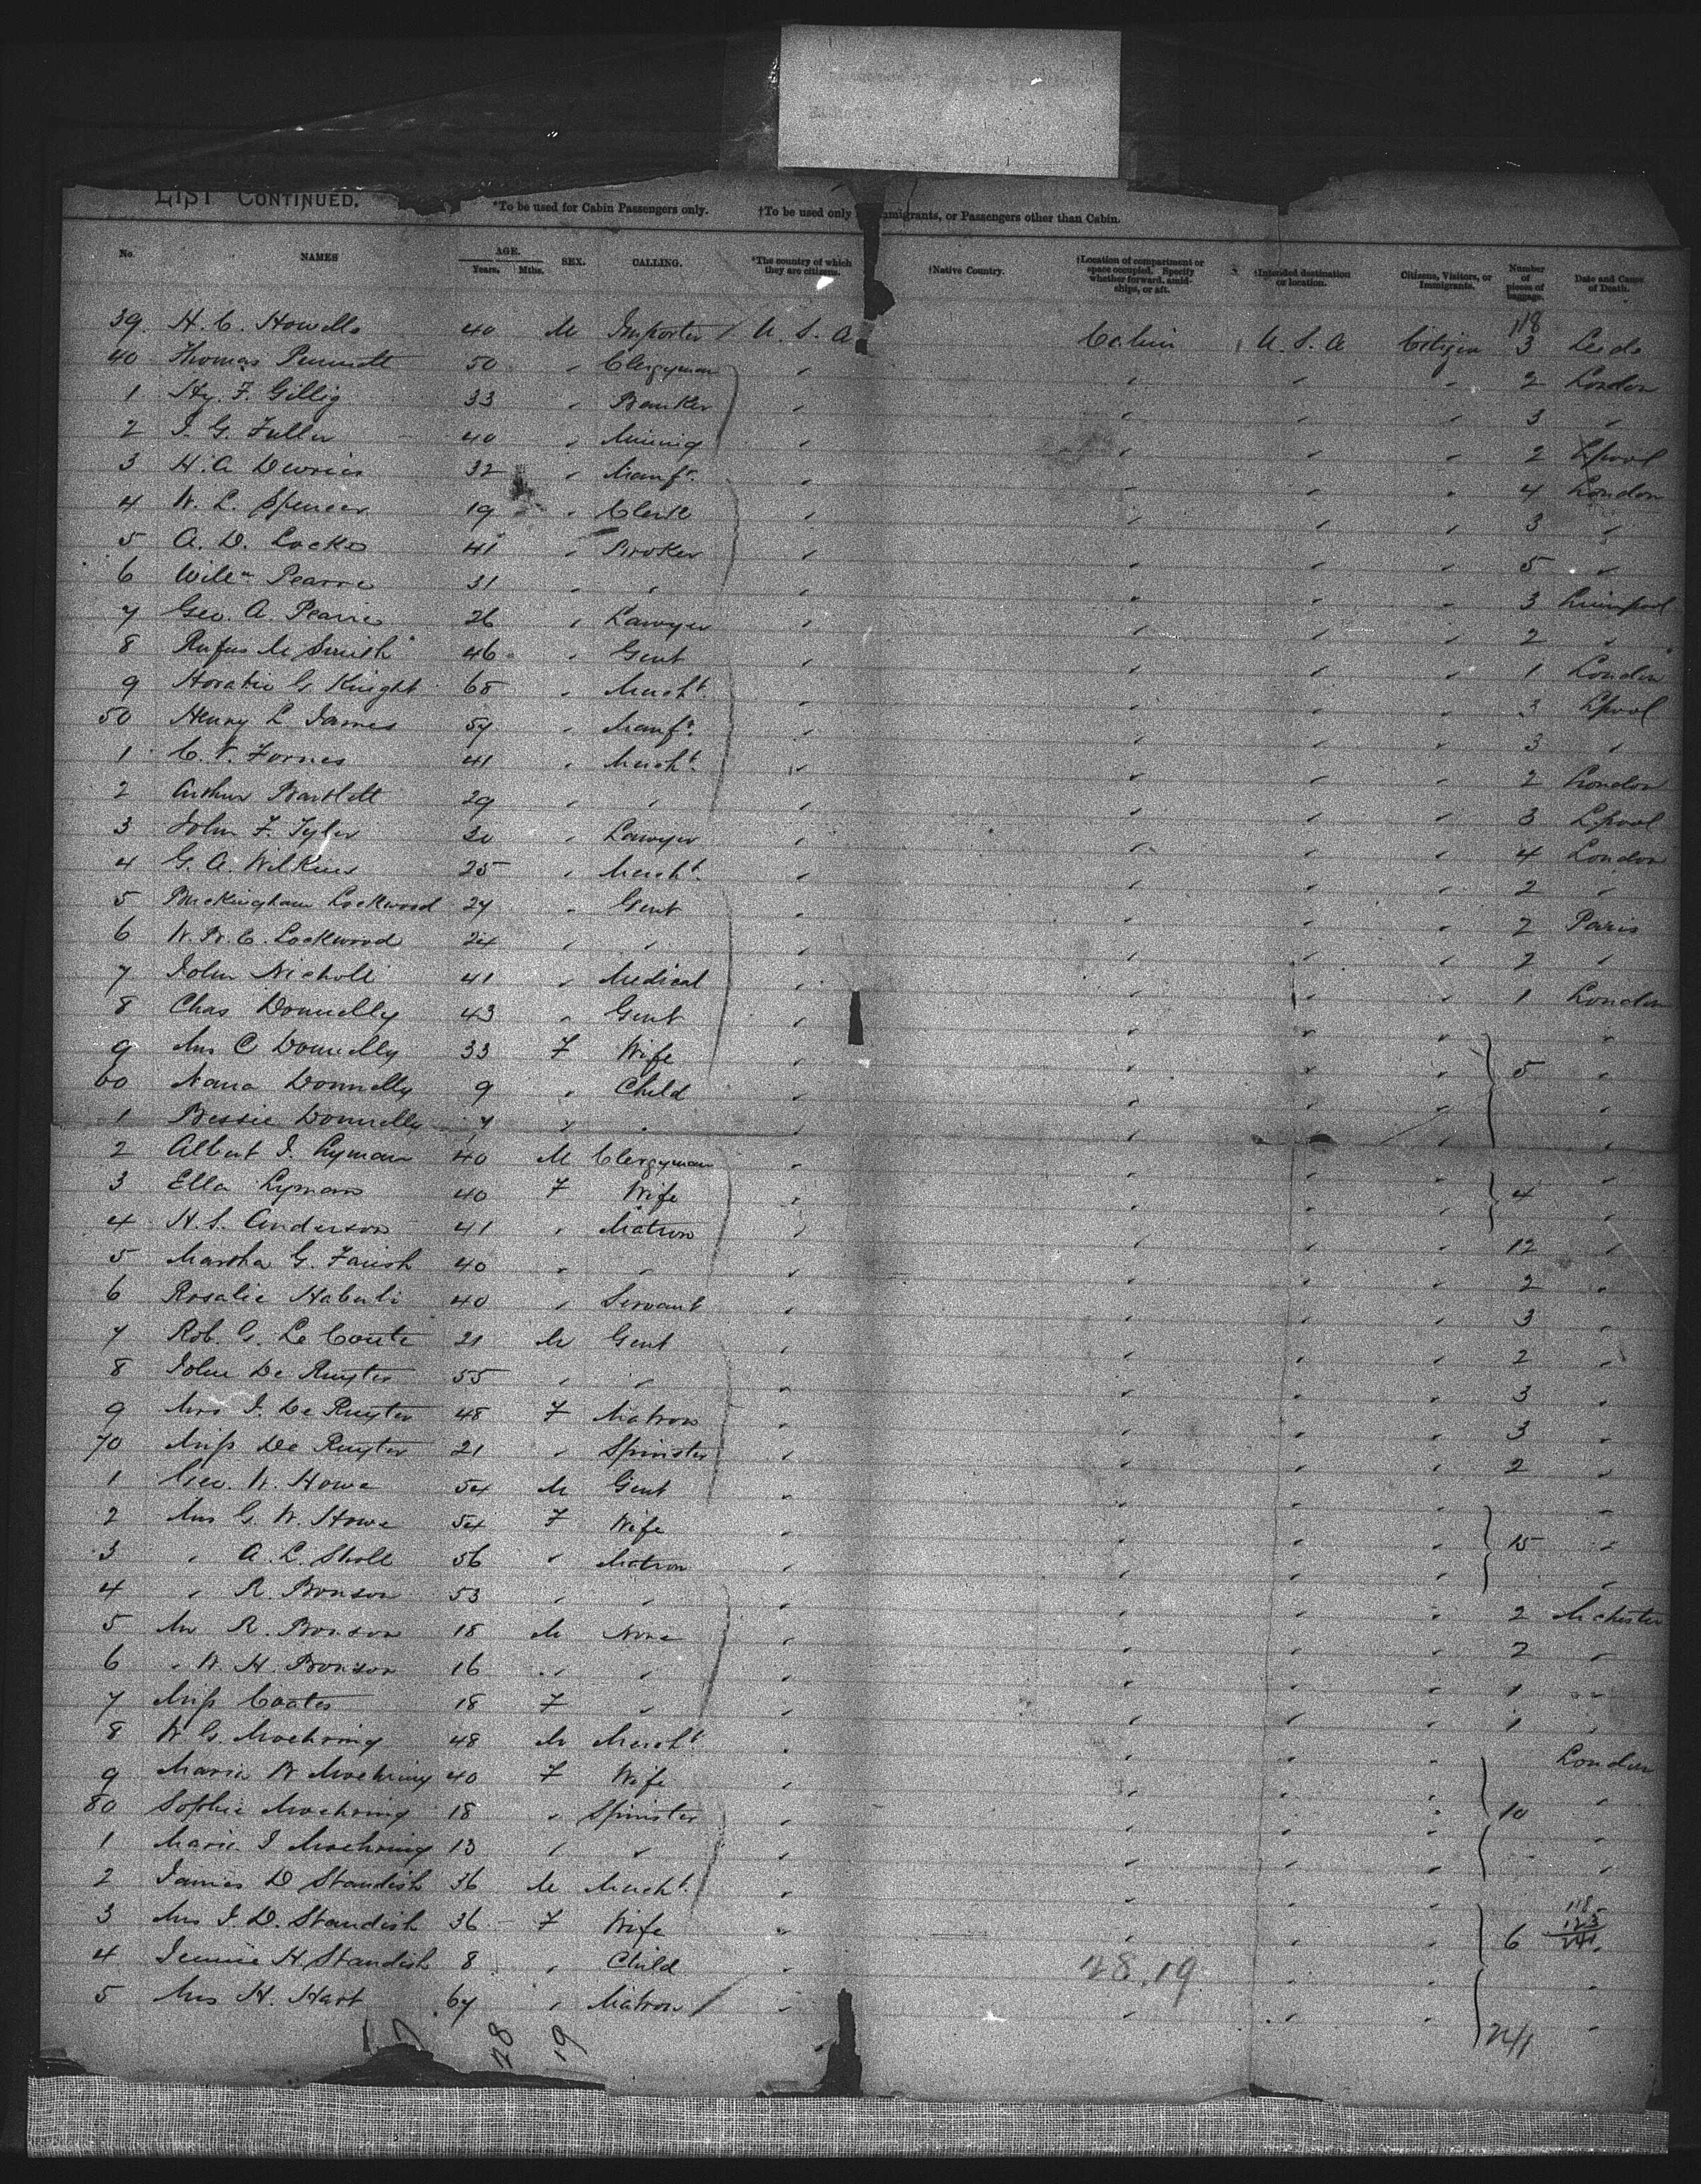 LIST CONTINUED.
*To be used for Cabin Passengers only. †To be used only Immigrants, or Passengers other than Cabin.
No. NAMES AGE. Years. Mths. SEX. CALLING. *The country of which they are citizens. †Native Country. †Location of compartment or space occupied. Specify whether forward, amidships, or aft. †Intended destination or location. Citizens, Visitors, or Immigrants. Number of pieces of baggage. Date and Cause of Death.
118
39. H. C. Howells 40 M Importer U.S.A Cabin U.S.A Citizen 3 Leeds
40 Thomas 50 " Clergyman " " " " 2 London
1 Hy. F. Gillig 33 " Banker " " " " 3 "
2 J. G. Fuller 40 " Mining " " " " 2 Lpool
3 H. A 32 " Manfr. " " " " 4 London
4 W. L. Spencer 19 " Clerk " " " " 3 "
5 A. D. Locke 41 " Broker " " " " 5 "
6 Willm Pearre 31 " " " " " " 3 Liverpool
7 Geo. A. Pearre 26 " Lawyer " " " " 2 "
8 Rufus M Smith 46 " Gent " " " " 1 London
9 Horatio G Knight 68 " Mercht. " " " " 3 Lpool
50 Henry L James 57 " Manfr. " " " " 3 "
1 C. V. Fornes 41 " Mercht. " " " " 2 London
2 Arthur Bartlett 29 " " " " " " 3 Lpool
3 John F. Tyler " Lawyer " " " " 4 London
4 G. A. Wilkins 25 " Mercht. " " " " 2 "
5 Buckingham Lockwood 27 " Gent " " " " 2 Paris
6 W. B. C. Lockwood 24 " " " " " " 2 "
7 John Nicholl 41 " Medical " " " " 1 London
8 Chas Donnelly 43 " Gent " " " " "
9 Mrs C Donnelly 33 F Wife " " " " 5 "
60 Nana Donnelly 9 " Child " " " " "
1 Bessie Donnelly 7 " " " " " " "
2 Albert J. Lyman 40 M Clergyman " " " " "
3 Ella Lyman 40 F Wife " " " " 4 "
4 H. S. Anderson 41 " Matron " " " " 12 "
5 Martha G. Farish 40 " " " " " " 2 "
6 Rosalie 40 " Servant " " " " 3 "
7 Rob. G. Le Conte 21 M Gent " " " " 2 "
8 John De Ruyter 55 " " " " " " 3 "
9 Mrs J. De Ruyter 48 F Matron " " " " 3 "
70 Miss De Ruyter 21 " Spinster " " " " 2 "
1 Geo. W. Howe 54 M Gent " " " " "
2 Mrs G. W. Howe 54 F Wife " " " " 15 "
3 " A. L. 56 " Matron " " " " "
4 " R. Bronson 53 " " " " " " 2 Mchester
5 Mr R. Bronson 18 M None " " " " 2 "
6 " W. H. Bronson 16 " " " " " " 1 "
7 Miss Coates 18 F " " " " " 1 "
8 W. G. Moehring 48 M Mercht " " " " London
9 Maria W Moehring 40 F Wife " " " " "
80 Sophie Moehring 18 " Spinster " " " " 10 "
1 Marie J Moehring 13 " " " " " " "
2 James D Standish 36 M Mercht. " " " "
118
123
241
3 Mrs J. D. Standish 36 F Wife " " " " 6
4 Jennie H. Standish 8 " Child " 28.19 " " "
5 Mrs H. Hart 67 " Matron " " " " "
241
28 19